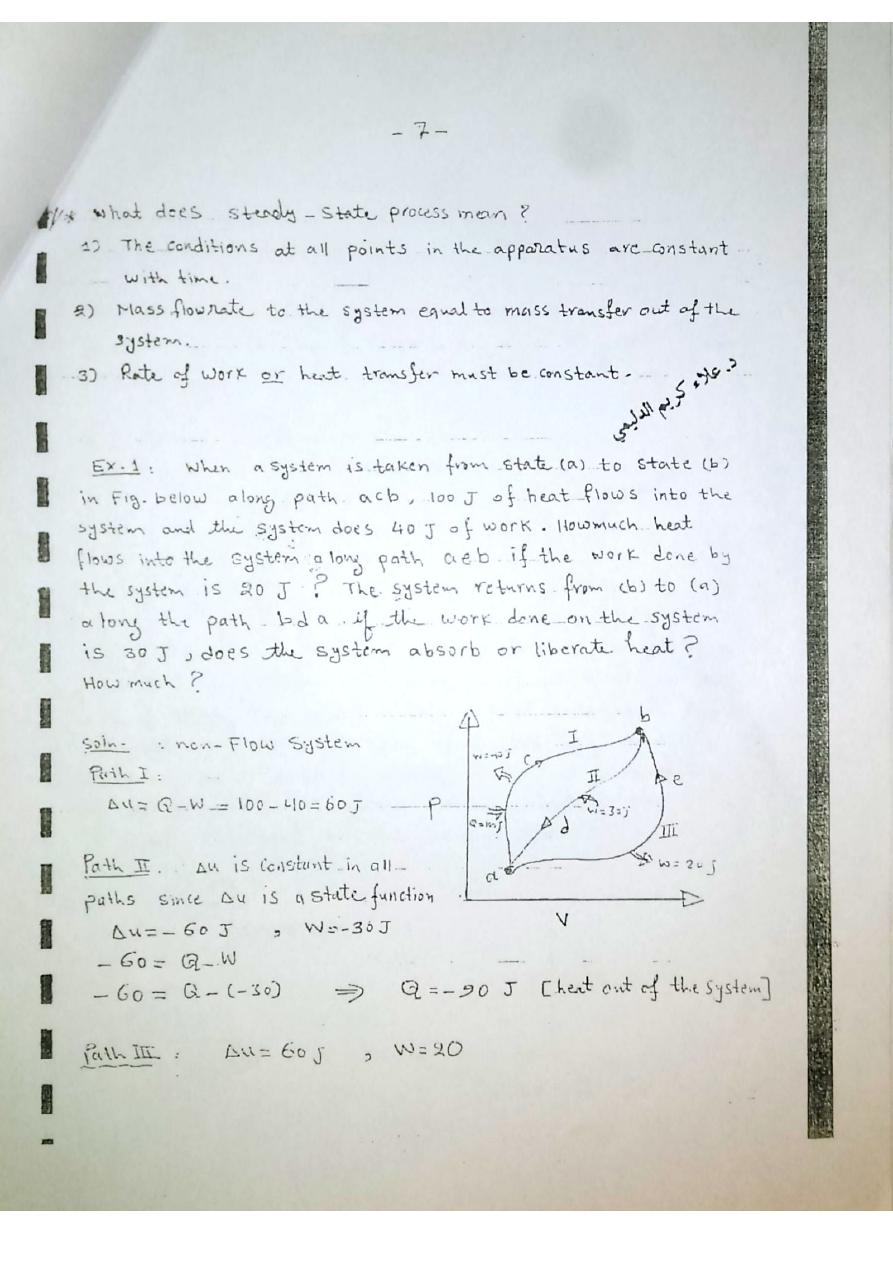 - 7 -
What does steady - state process mean ?
1) The conditions at all points in the apparatus are constant
with time.
2) Mass flowrate to the system equal to mass transfer out of the
system.
3) Rate of work or heat transfer must be constant.
د. علاء كريم الدليمي
Ex. 1 : When a system is taken from state (a) to state (b)
in Fig. below along path acb, 100 J of heat flows into the
system and the system does 40 J of work. Howmuch heat
flows into the system along path aeb if the work done by
the system is 20 J ? The system returns from (b) to (a)
along the path bda if the work done on the system
is 30 J, does the system absorb or liberate heat ?
How much ?
Soln- : non-Flow System
Path I :
Δu = Q - W = 100 - 40 = 60 J
Path II. Δu is constant in all
paths since Δu is a state function
Δu = - 60 J , W = -30 J
- 60 = Q - W
- 60 = Q - (-30) ⇒ Q = -90 J [heat out of the system]
Path III : Δu = 60 J , W = 20
b
I
c
II
e
P
W=30j
d
III
a
W = 20 j
V